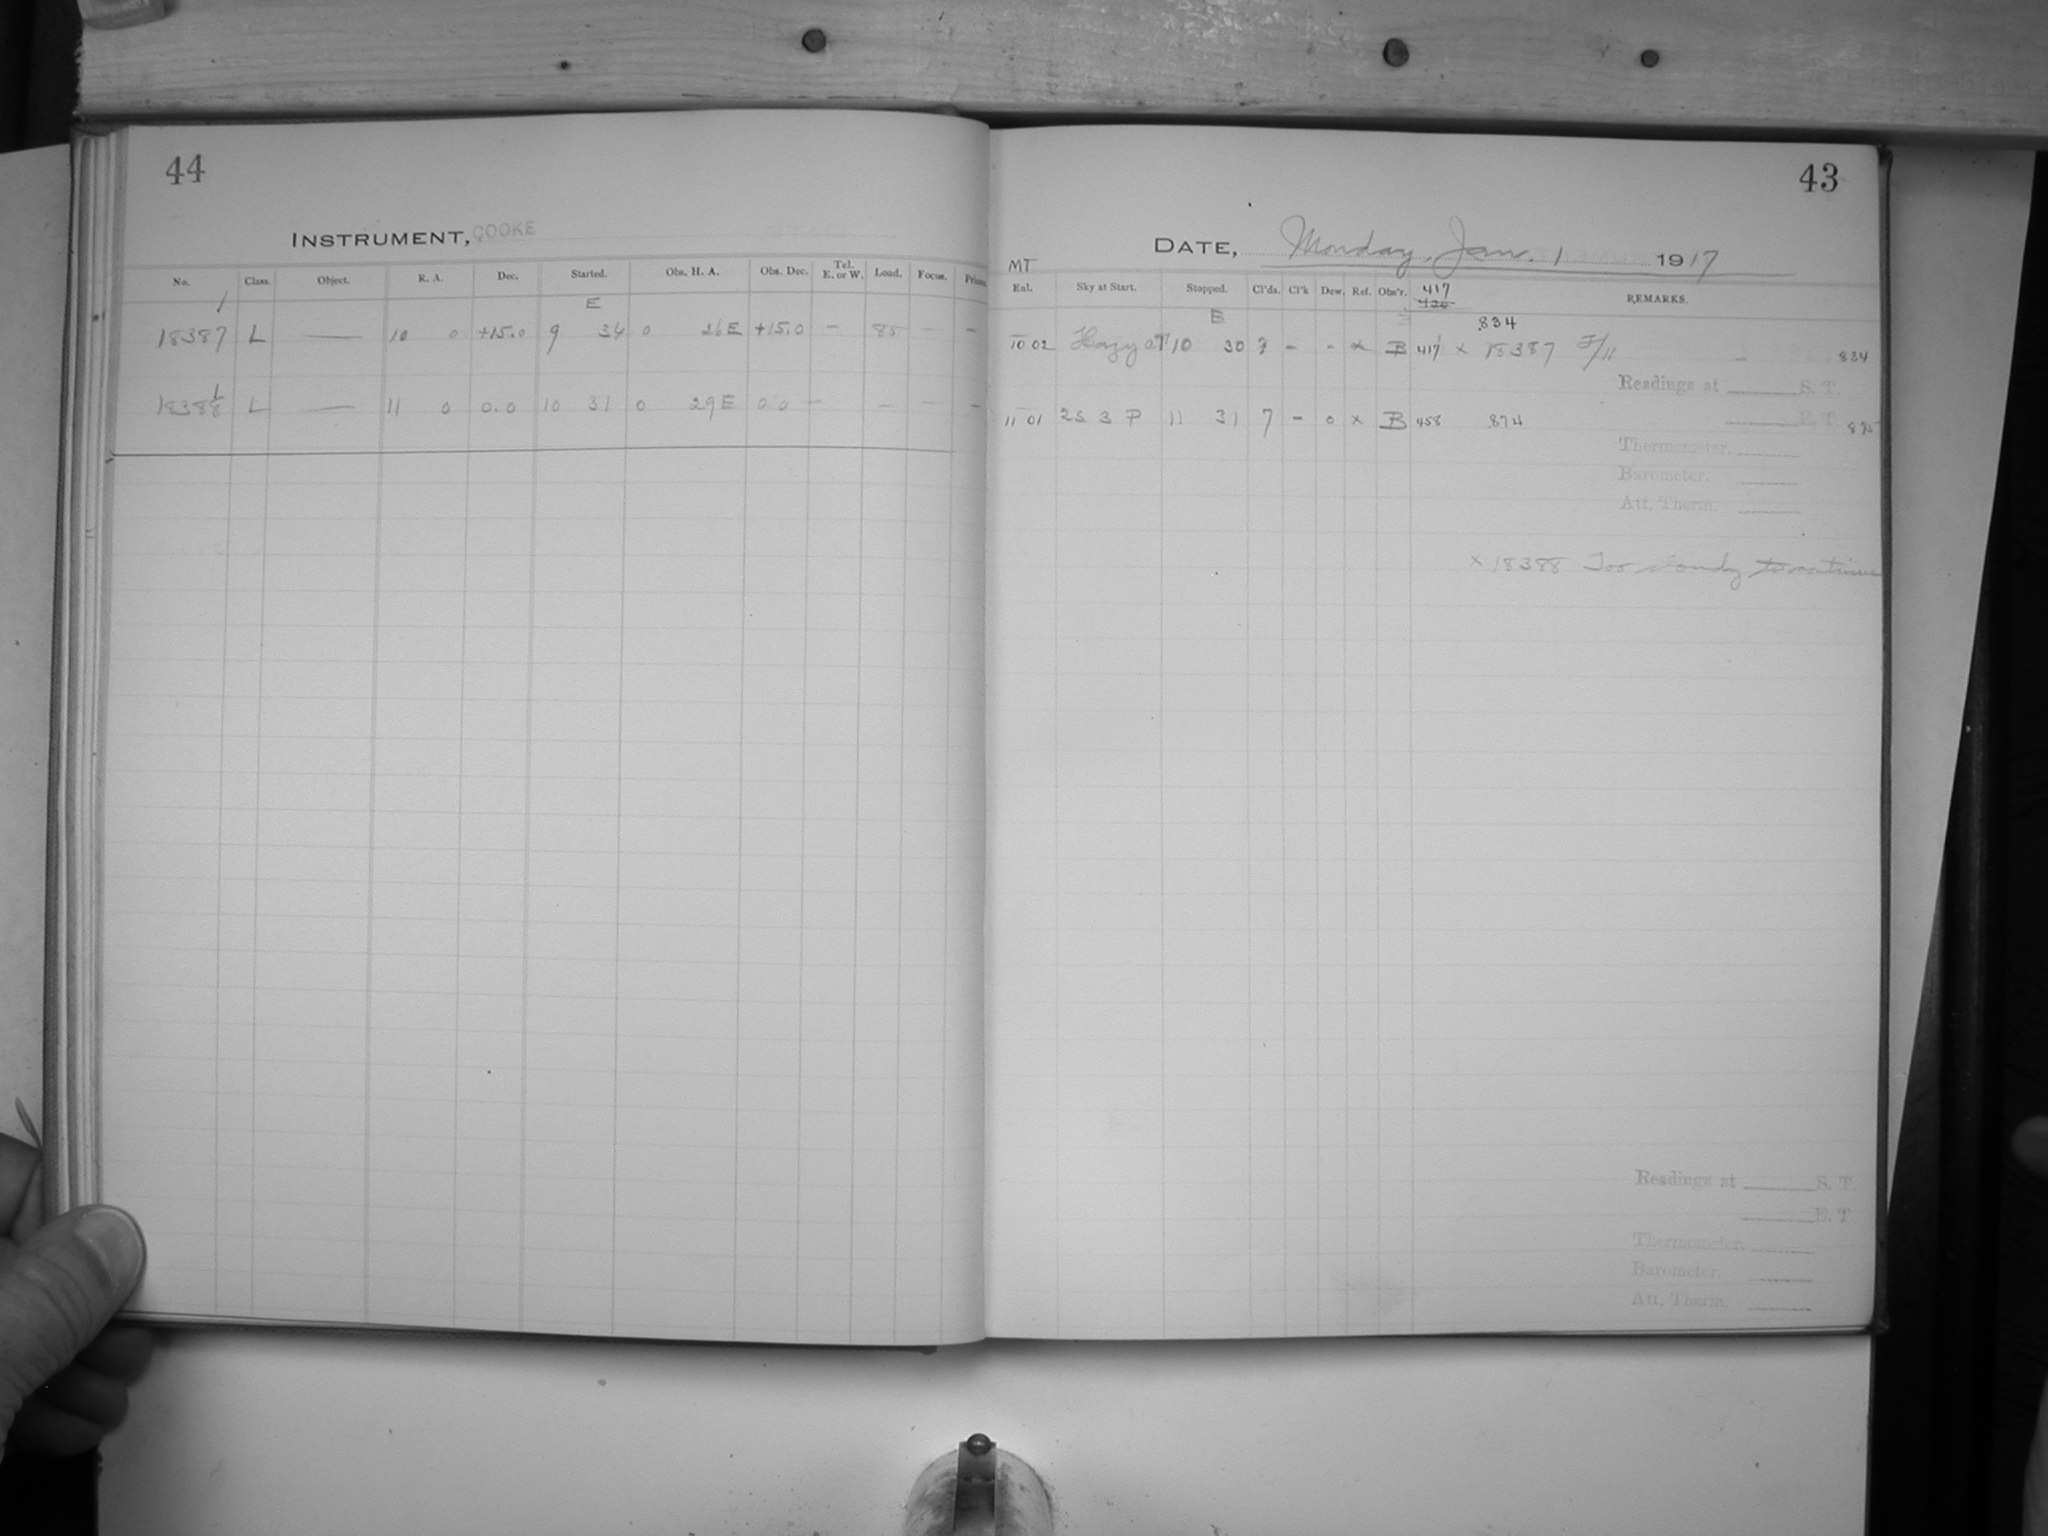 44
INSTRUMENT, COOKE
No. Class. Object. R. A. Dec. Started. Obs. H. A. Obs. Dec. Tel. E. or W. Load. Focus.
1 E
18387 L — 10 0 +15.0 9 34 0 26E +15.0 — 85 — —
18388 L — 11 0 0.0 10 31 0 29E 0.0 — — — —
43
DATE, Monday, Jan. 1 1917
MT
Enl. Sky at Start. Stopped. Cl'ds. Cl'k Dew. Ref. Obs'r. 417 REMARKS.
420
E 834
10 02 Hazy 10 30 - - x B 417 x 18387 - 834
Readings at S. T.
11 01 2S 3 P 11 31 7 - 0 x B 458 874
E. T.
Thermometer.
Barometer.
Att. Therm.
x 18388 Too cloudy to continue
Readings at S. T.
E. T
Thermometer.
Barometer.
Att. Therm.